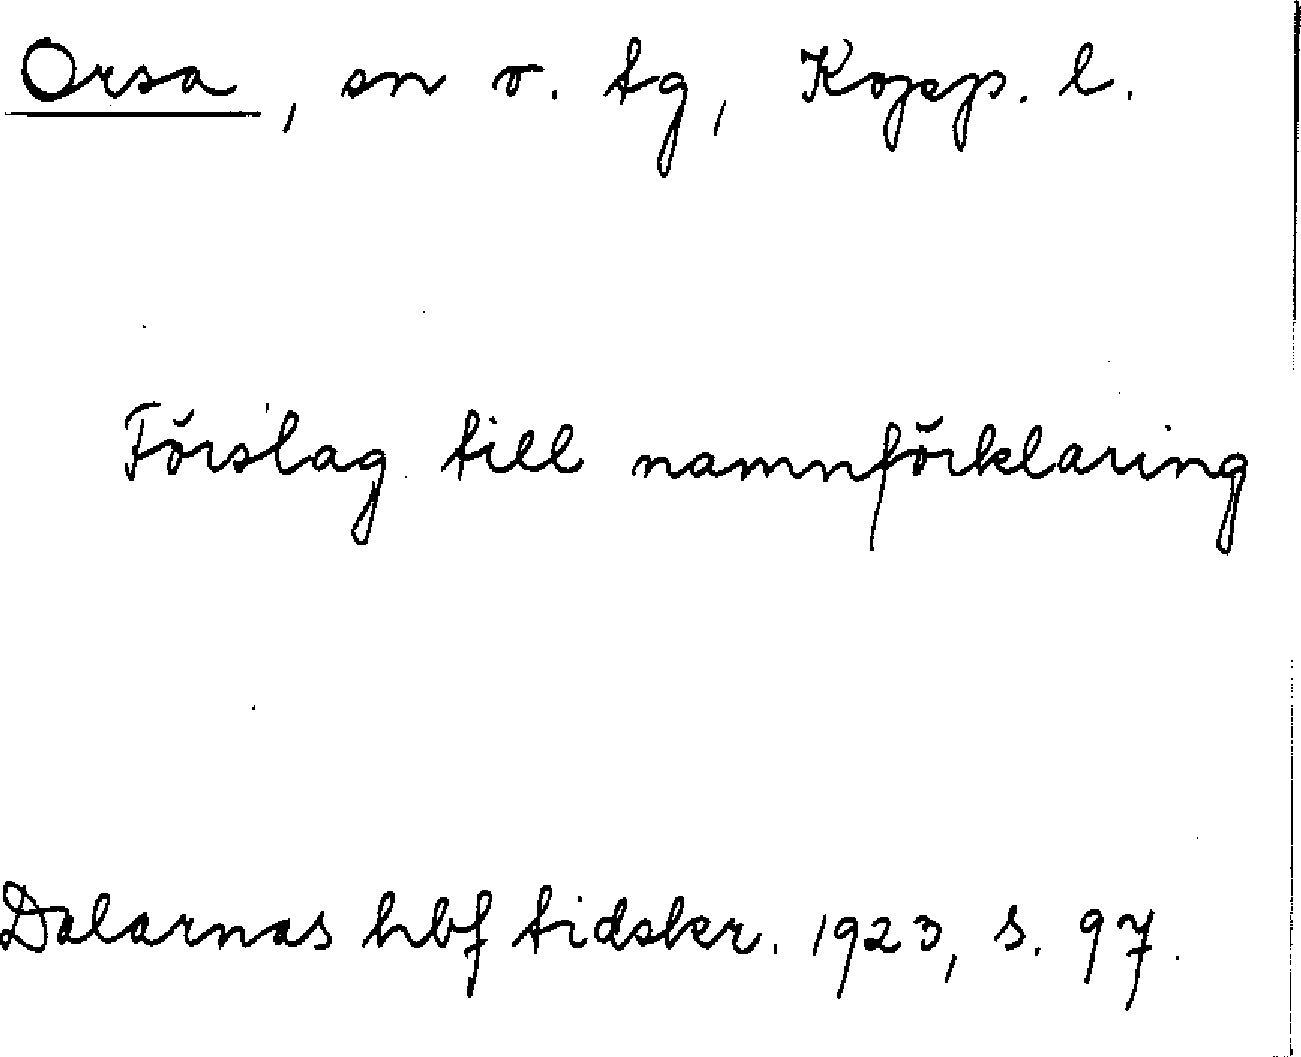 Orsa, sn o. tg, Kopp. l.
Förslag till namnförklaring
Dalarnas hbf tidskr. 1923, s. 97.